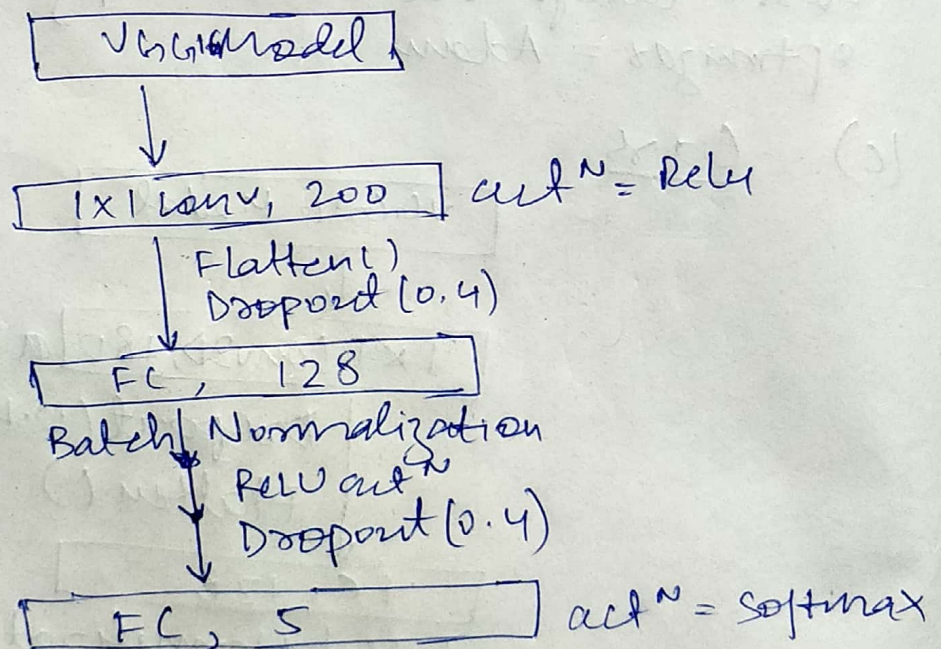 VGG16 Model
1x1 conv, 200 actᴺ = Relu
Flatten()
Dropout (0.4)
FC, 128
Batch Normalization
ReLU actᴺ
Dropout (0.4)
FC, 5 actᴺ = Softmax